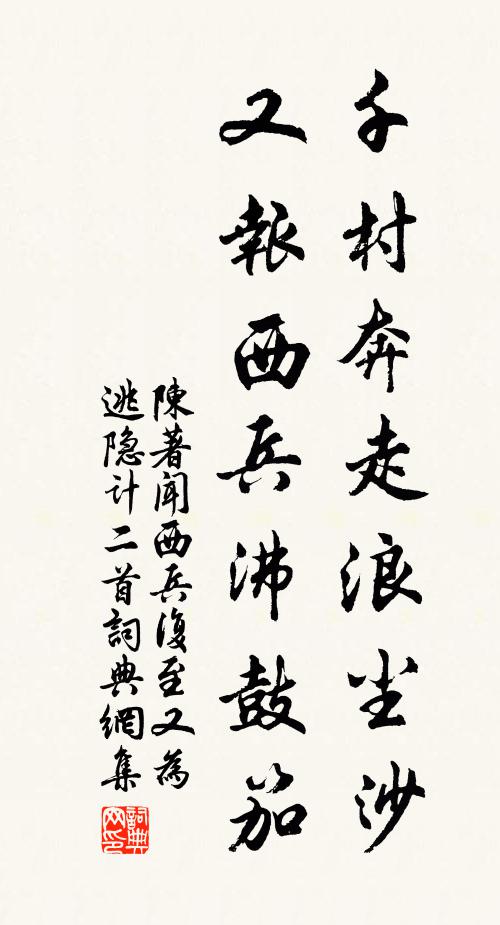 千村奔走浪尘沙
又報西兵沸鼓笳
陳著闻西兵復至又為
逃隐计二首詞典網集
詞典
网印